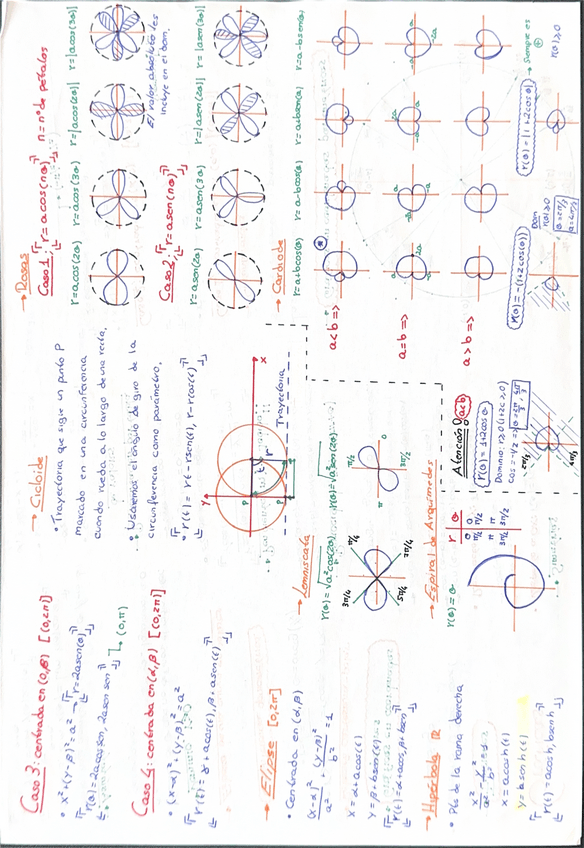 Caso 3: centrada en (0,β) [(0,2π)]
• x²+(y-β)²=a² → r=2asen(θ)
r(θ)=(2acosθsenθ, 2asenθsenθ)
↳ (0,π)
Caso 4: centrada en (α,β) [(0,2π)]
• (x-α)²+(y-β)²=a²
r(t)=(α+acos(t), β+asen(t))
→ Elipse [0,2π]
• Centrada en (α,β)
(x-α)²/a² + (y-β)²/b² = 1
x=α+acos(t)
y=β+bsen(t)
r(t)=(α+acos, β+bsen)
→ Hipérbola ℝ
• Pts de la rama derecha
x²/a² - y²/b² = 1
x=acosh(t)
y=bsenh(t)
r(t)=(acosh, bsenh)
→ Cicloide
• Trayectoria que sigue un punto P
marcado en una circunferencia
cuando rueda a lo largo de una recta.
• Usaremos el ángulo de giro de la
circunferencia como parámetro.
• r(t)=(rt-rsen(t), r-rcos(t))
Y
X
P
t
r
P
Trayectoria
→ Lemniscata
r(θ)=√a²cos(2θ)
r(θ)=√asen(2θ)
3π/4
π/4
5π/4
7π/4
π/2
π
3π/2
→ Espiral de Arquímedes
r(θ)=θ
r θ
0 0
π/2 π/2
π π
3π/2 3π/2
→ Rosas
Caso 1: r=acos(nθ) n=nº de pétalos
r=acos(2θ)
r=acos(3θ)
r=|acos(2θ)|
r=|acos(3θ)|
El valor absoluto les
incluye en el dom.
Caso 2: r=asen(nθ)
r=asen(2θ)
r=asen(3θ)
r=|asen(2θ)|
r=|asen(3θ)|
→ Cardioide
r=a+bcos(θ)
r=a-bcos(θ)
r=a+bsen(θ)
r=a-bsen(θ)
a<b =>
a=b =>
2a
a
-a
-2a
a
-a
-a
a
-a
a
-2a
a>b =>
Atención! (a<b)
r(θ)=1+2cosθ
Dominio: r≥0 (1+2c≥0)
2π/3
4π/3
r(θ)=-(1+2cos(θ))
Dom
r(θ)≥0
θ=2π/3
r(θ)=|1+2cosθ| → Siempre es ⊕
r(θ)≥0